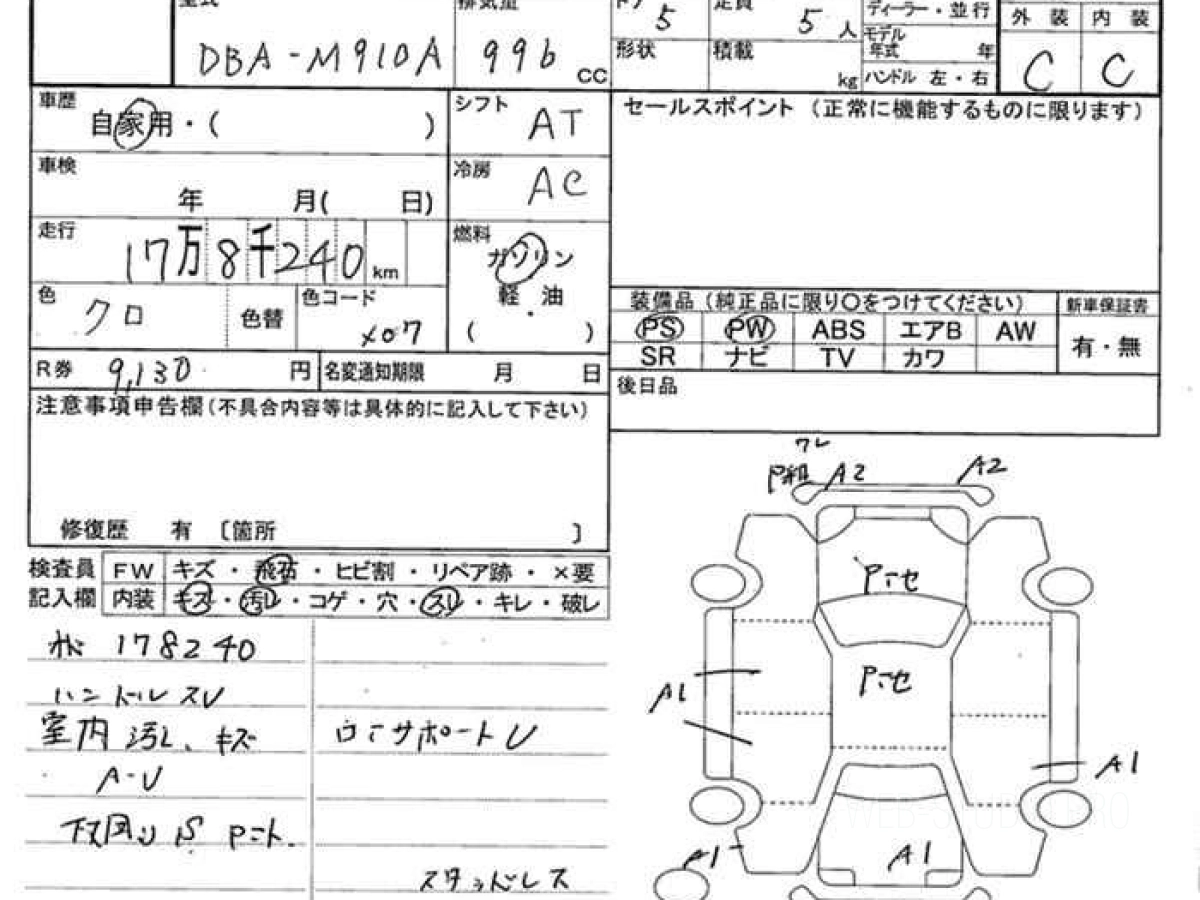 型式
DBA-M910A
排気量
996 CC
ドア
5
定員
5人
形状
積載
kg
ディーラー・並行
モデル
年式 年
ハンドル 左・右
外装 内装
C C
車歴
自家用・( )
シフト
AT
車検
年 月( 日)
冷房
AC
走行
17万8千240km
燃料
ガソリン
軽油
・
( )
色
クロ
色替
色コード
X07
R券 9,130円
名変通知期限 月 日
注意事項申告欄(不具合内容等は具体的に記入して下さい)
修復歴 有 〔箇所 〕
セールスポイント (正常に機能するものに限ります)
装備品 (純正品に限り○をつけてください)
新車保証書
PS PW ABS エアB AW
SR ナビ TV カワ
有・無
後日品
検査員
記入欄
FW キズ・飛石・ヒビ割・リペア跡・×要
内装 キズ・汚レ・コゲ・穴・スレ・キレ・破レ
178240
ハンドルスレ
室内汚レ、キズ
A-U
下回りS
サポートU
スタッドレス
ワレ
A2
A2
A1
A1
A1
A1